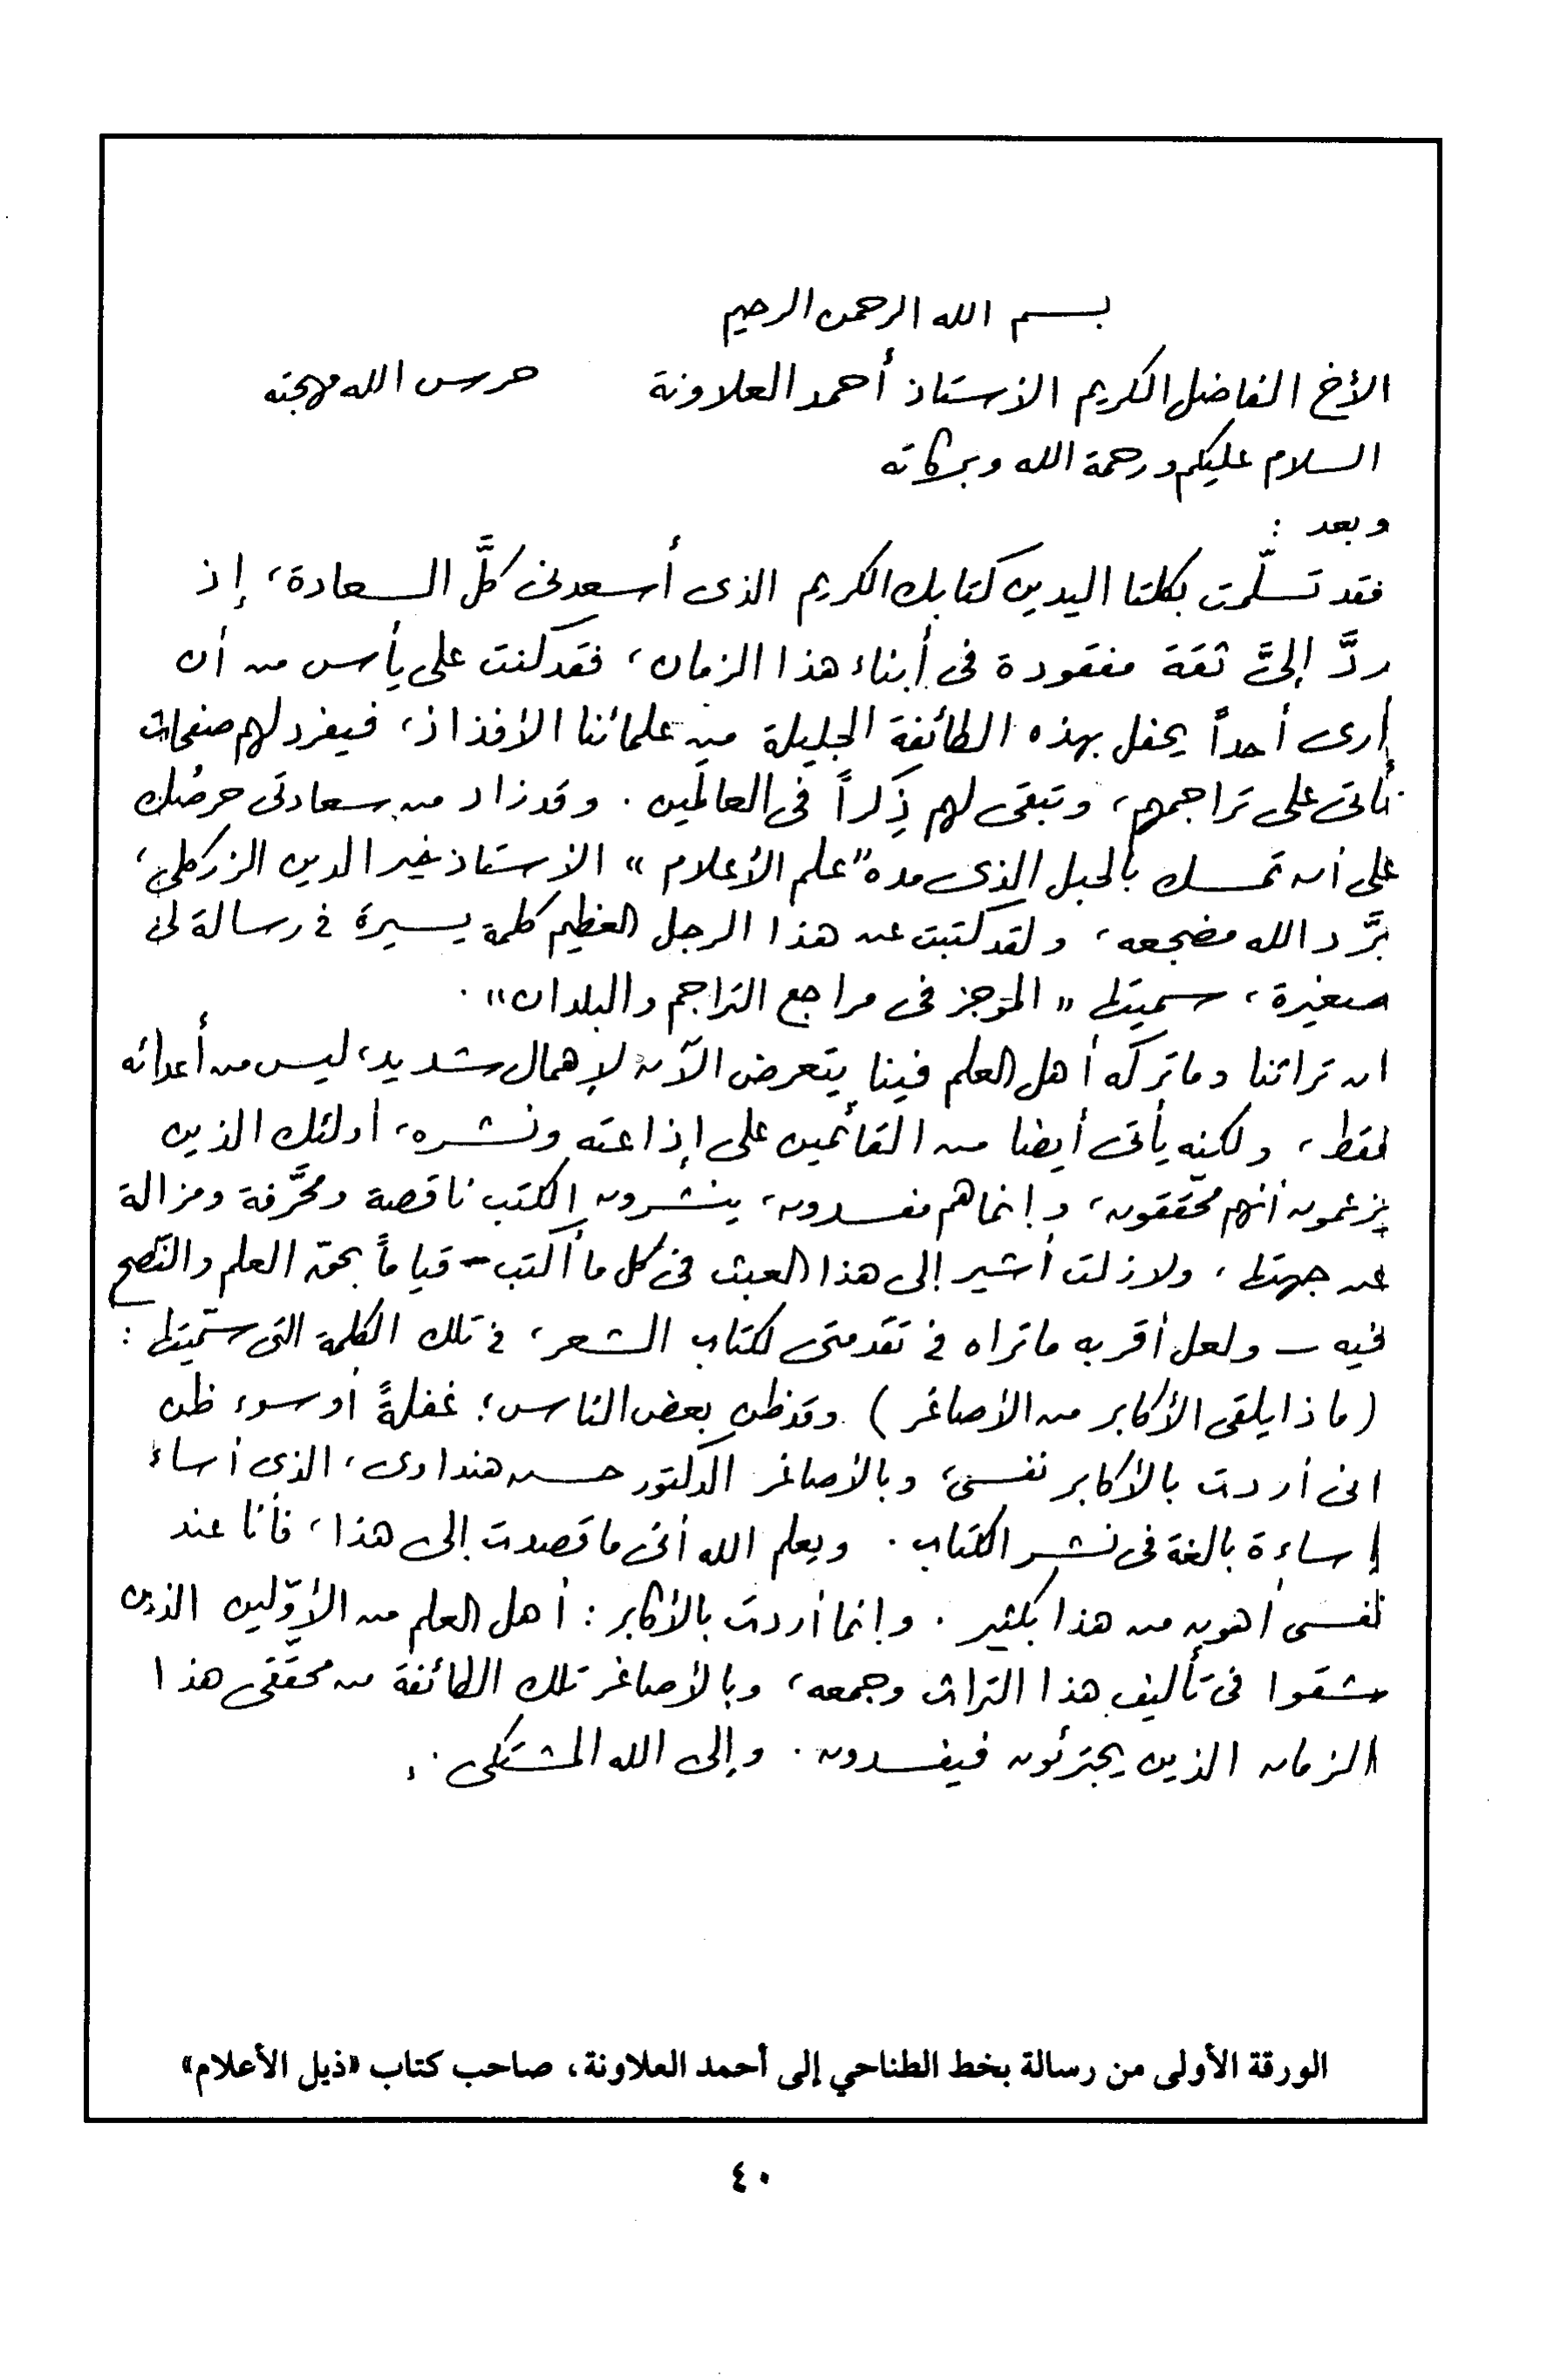 بسم الله الرحمن الرحيم
الأخ الفاضل الكريم الأستاذ أحمد العلاونة حرس الله مهجته
السلام عليكم ورحمة الله وبركاته
وبعد :
فقد تسلّمت بكلتا اليدين كتابك الكريم الذى أسعدنى كلَّ السعادة، إذ
ردَّ إلىَّ ثقة مفقودة فى أبناء هذا الزمان، فقد كنت على يأس من أن
أرى أحداً يحفل بهذه الطائفة الجليلة من علمائنا الأفذاذ، فيفرد لهم صفحات
تأتى على تراجمهم، وتبقى لهم ذِكراً فى العالَمين. وقد زاد من سعادتى حرصُك
على أن تمسك بالحبل الذى مده "علم الأعلام" الأستاذ خير الدين الزركلى،
برَّد الله مضجعه، ولقد كتبت عن هذا الرجل العظيم كلمة يسيرة فى رسالة لى
صغيرة، سميتها "الموجز فى مراجع التراجم والبلدان".
ان تراثنا وما تركه أهل العلم فينا يتعرض الآن لإهمال شديد، ليس من أعدائه
فقط، ولكنه يأتى أيضا من القائمين على إذاعته ونشره، أولئك الذين
يزعمون أنهم محقّقون، وإنما هم مفسدون، ينشرون الكتب ناقصة ومحرَّفة ومزالة
عن جهتها، ولازلت أشير إلى هذا العبث فى كل ما أكتب - قياماً بحق العلم والنّصح
فيه - ولعل أقربه ما تراه فى تقدمتى لكتاب الشعر، فى تلك الكلمة التى سمّيتها :
(ماذا يلقى الأكابر من الأصاغر) وقد ظن بعض الناس؛ غفلةً أو سوء ظن
انى أردت بالأكابر نفسى، وبالأصاغر الدكتور حسن هنداوى، الذى أساء
إساءة بالغة فى نشر الكتاب. ويعلم الله أنى ما قصدت إلى هذا، فأنا عند
نفسى أهون من هذا بكثير. وإنما أردت بالأكابر: أهل العلم من الأوّلين الذين
شقوا فى تأليف هذا التراث وجمعه، وبالأصاغر تلك الطائفة من محقّقى هذا
الزمان الذين يجترئون فيفسدون. وإلى الله المشتكى.
الورقة الأولى من رسالة بخط الطناحي إلى أحمد العلاونة، صاحب كتاب «ذيل الأعلام»
٤٠